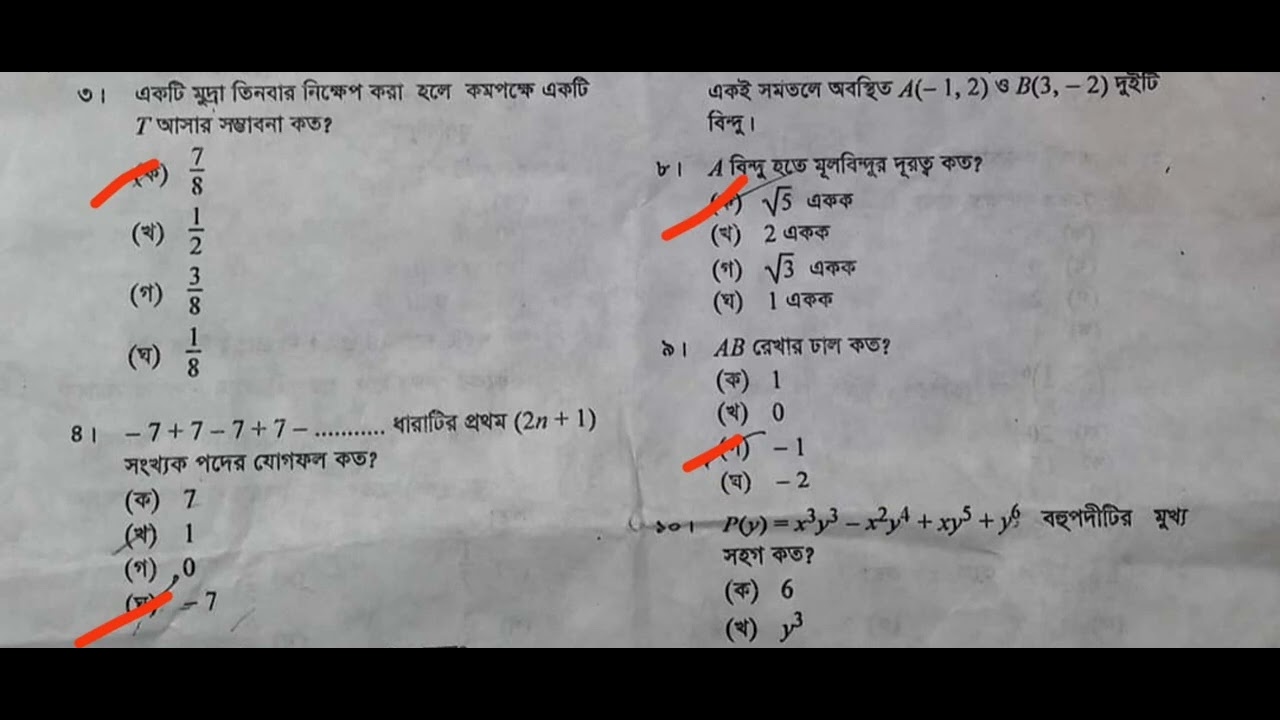 ৩। একটি মুদ্রা তিনবার নিক্ষেপ করা হলে কমপক্ষে একটি
T আসার সম্ভাবনা কত?
(ক) 7/8
(খ) 1/2
(গ) 3/8
(ঘ) 1/8
৪। – 7 + 7 – 7 + 7 – ........... ধারাটির প্রথম (2n + 1)
সংখ্যক পদের যোগফল কত?
(ক) 7
(খ) 1
(গ) 0
(ঘ) – 7
একই সমতলে অবস্থিত A(– 1, 2) ও B(3, – 2) দুইটি
বিন্দু।
৮। A বিন্দু হতে মূলবিন্দুর দূরত্ব কত?
(ক) √5 একক
(খ) 2 একক
(গ) √3 একক
(ঘ) 1 একক
৯। AB রেখার ঢাল কত?
(ক) 1
(খ) 0
(গ) – 1
(ঘ) – 2
১০। P(y) = x³y³ – x²y⁴ + xy⁵ + y⁶ বহুপদীটির মুখ্য
সহগ কত?
(ক) 6
(খ) y³